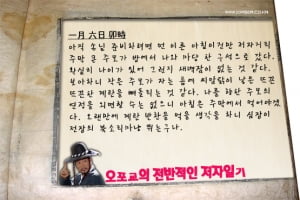 一月 六日 卯時
아직 손님 준비하려면 먼 이른 아침이건만 저자거리
주막 문 주모가 방에서 나와 마당 한 구석으로 갔다.
확실히 나이가 있어 그런지 새벽잠이 없는 것 같다.
보아하니 작은 주모가 자는 틈에 씨암탉이 낳은 뜨끈
뜨끈한 계란을 빼돌리는 것 같다. 나를 향한 주모의
열정을 외면할 수는 없으니 아침은 주막에서 먹어야겠
다. 오랜만에 계란 반찬을 먹을 생각을 하니 심장이
전장의 북소리마냥 뛰는구나.
오포교의 전반적인 저자일기